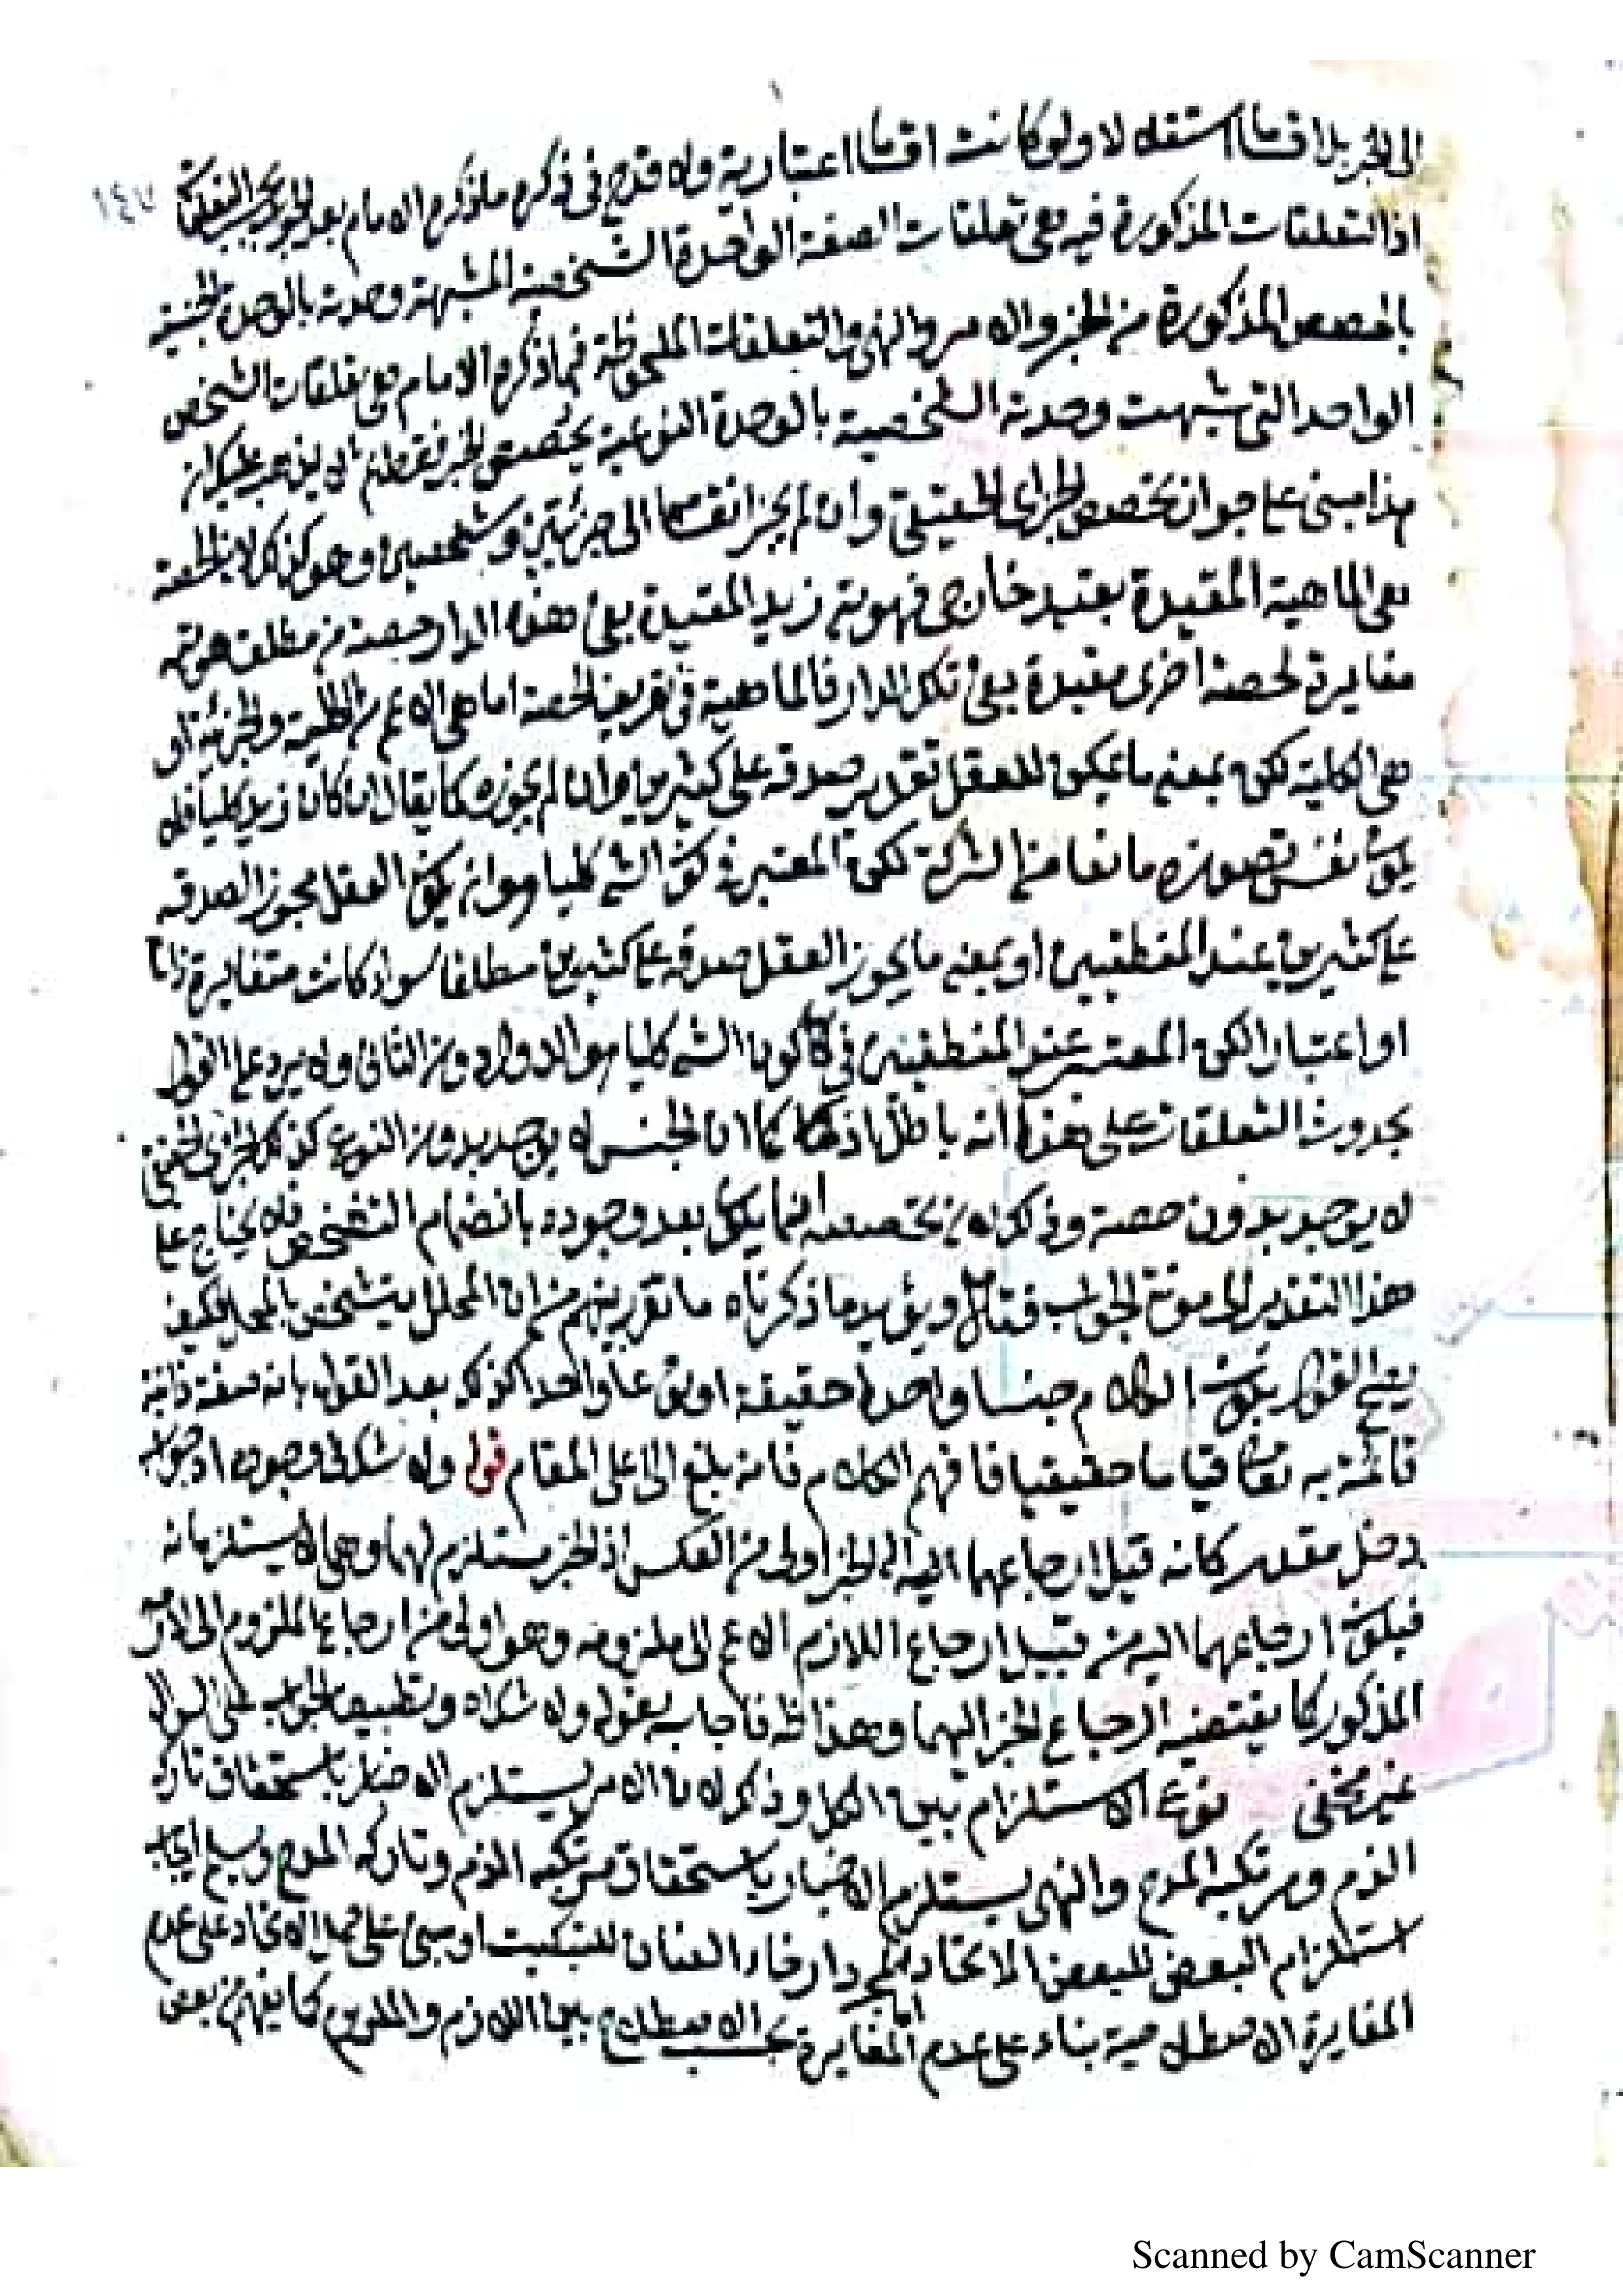 ١
الى الخبر بلا اقساما مستقلة لا ولو كانت اقساما اعتبارية ولا قدح في ذكره ما ذكره الامام بعد بحسب التعلقات
١٤٧
اذ التعلقات المذكورة فيه هي تعلقات الصفة الواحدة الشخصية المشبهة وحدته بالوحدة الجنسية
بالحصص المذكورة من الخبر والامر والنهي والتعلقات الملحوظة فيما ذكره الامام هي تعلقات الشخص
الواحد التي شبهت وحدته الشخصية بالوحدة النوعية بحصص الخبر فقط ثم لا يذهب عليك ان
هذا مبنى على جواز تحصص الجزئى الحقيقى وان لم يجز انقسامه الى جزئيتين وشخصين وهو كذلك لان الحصة
هى الماهية المقيدة بقيد خارجى فهوية زيد المقيدة بفى هذه الدار حصة من مطلق هويته
مغايرة لحصة اخرى مقيدة بفى تلك الدار فالماهية فى تعريف الحصة اما هى الاعم من الكلية والجزئية او
هى الكلية لكن بمعنى ما يمكن للعقل تقدير صدقه على كثيرين وان لم يجوزه كما يقال ان كان زيد كليا فلا
يكون نفس تصوره مانعا من الشركة لكن المعتبر فى كون الشئ كليا هو ان يكون العقل مجوزا لصدقه
على كثيرين عند المنطقيين او بمعنى ما يجوز العقل صدقه على كثيرين مطلقا سواء كانت متغايرة ذاتا
او اعتبارا لكن المعتبر عند المنطقيين في كون الشئ كليا هو الاول دون الثانى ولا يرد على القول
بحدوث التعلقات على هذا انه باطل اذ كما ان الجنس لا يوجد بدون النوع كذلك الجزئى الحقيقى
لا يوجد بدون حصة وذلك لان تحصصه انما يكون بعد وجوده بانضمام التشخص فلا يحتاج على
هذا التقدير الى مؤنة الجواب فتامل ويؤيد ما ذكرناه ما تقرر بينهم من ان الحال يتشخص بالمحل فكيف
يصح القول بكون الكلام جنسا واحدا حقيقة او نوعا واحدا كذلك بعد القول بانه صفة ذاتية
قائمة به تعالى قياما حقيقيا فافهم الكلام فانه بلغ الى اعلى المقام قوله ولا شك في وجوده اد جواب
دخل مقدر كانه قيل ارجاعهما اليه الى الخبر اولى من العكس اذ الخبر مستلزم لهما وهما لا يستلزمانه
فيكون ارجاعهما اليه من قبيل ارجاع اللازم الاعم الى ملزومه وهو اولى من ارجاع الملزوم الى لازمه
المذكور كما يقتضيه ارجاع الخبر اليهما وهذا ظ فاجاب بقوله ولا شك اه وتطبيق الجواب على السؤال
غير مخفى نوع الاستلزام بين الكل وذلك لان الامر يستلزم الاخبار باستحقاق تاركه
الذم ومرتكبه المدح والنهى يستلزم الاخبار باستحقاق مرتكبه الذم وتاركه المدح وسلم ايجاب
استلزام البعض للبعض الاتحاد لمجرد ارخاء العنان للتبكيت او مبنى على حمل الاتحاد على عدم
المغايرة الاصطلاحية بناء على عدم المغايرة بحسب الاصطلاح بين اللازم والملزوم كما يفهم من بعض
Scanned by CamScanner